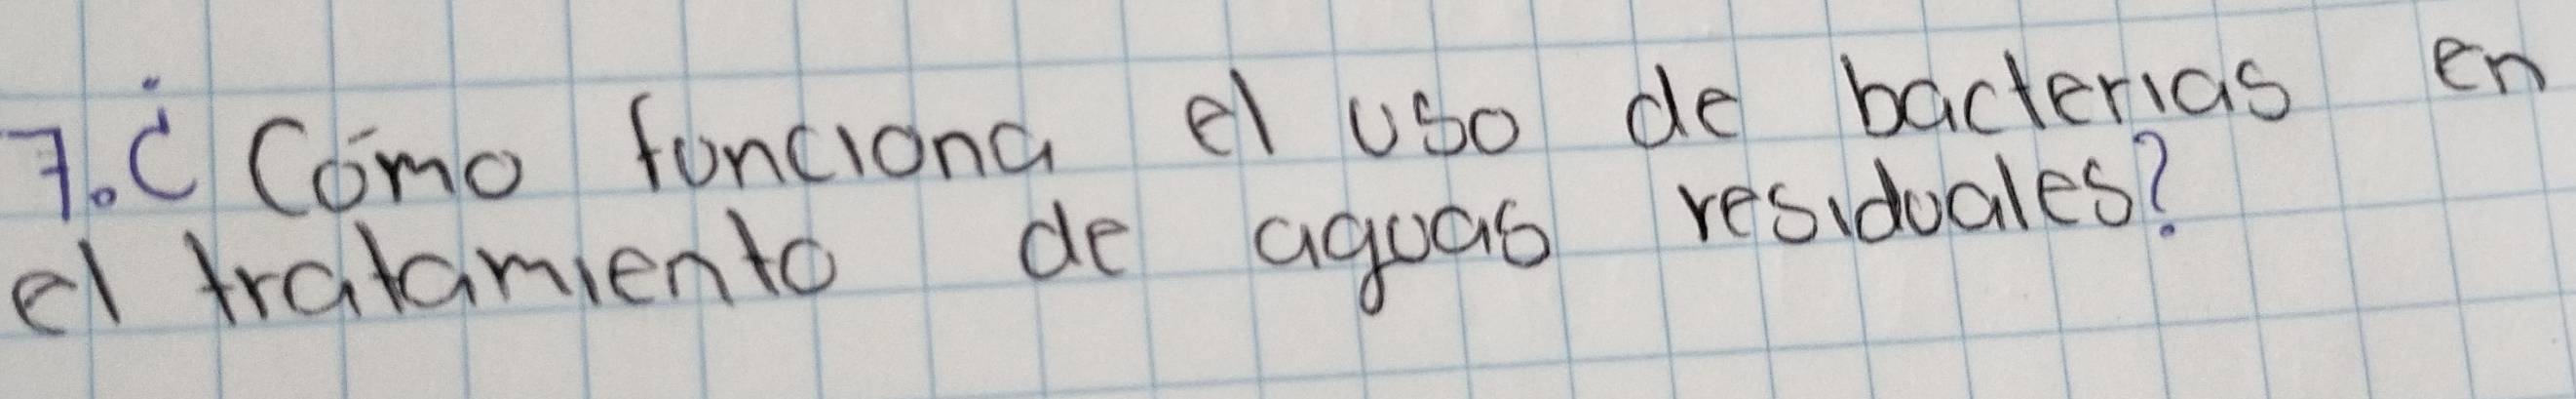 7.¿Cómo funciona el uso de bacterias en
el tratamiento de aguas residuales?